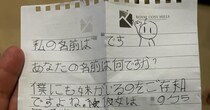 私の名前は
です
あなたの名前は何ですか?
僕にも妹がいるのをご存知
ですよね。彼女は